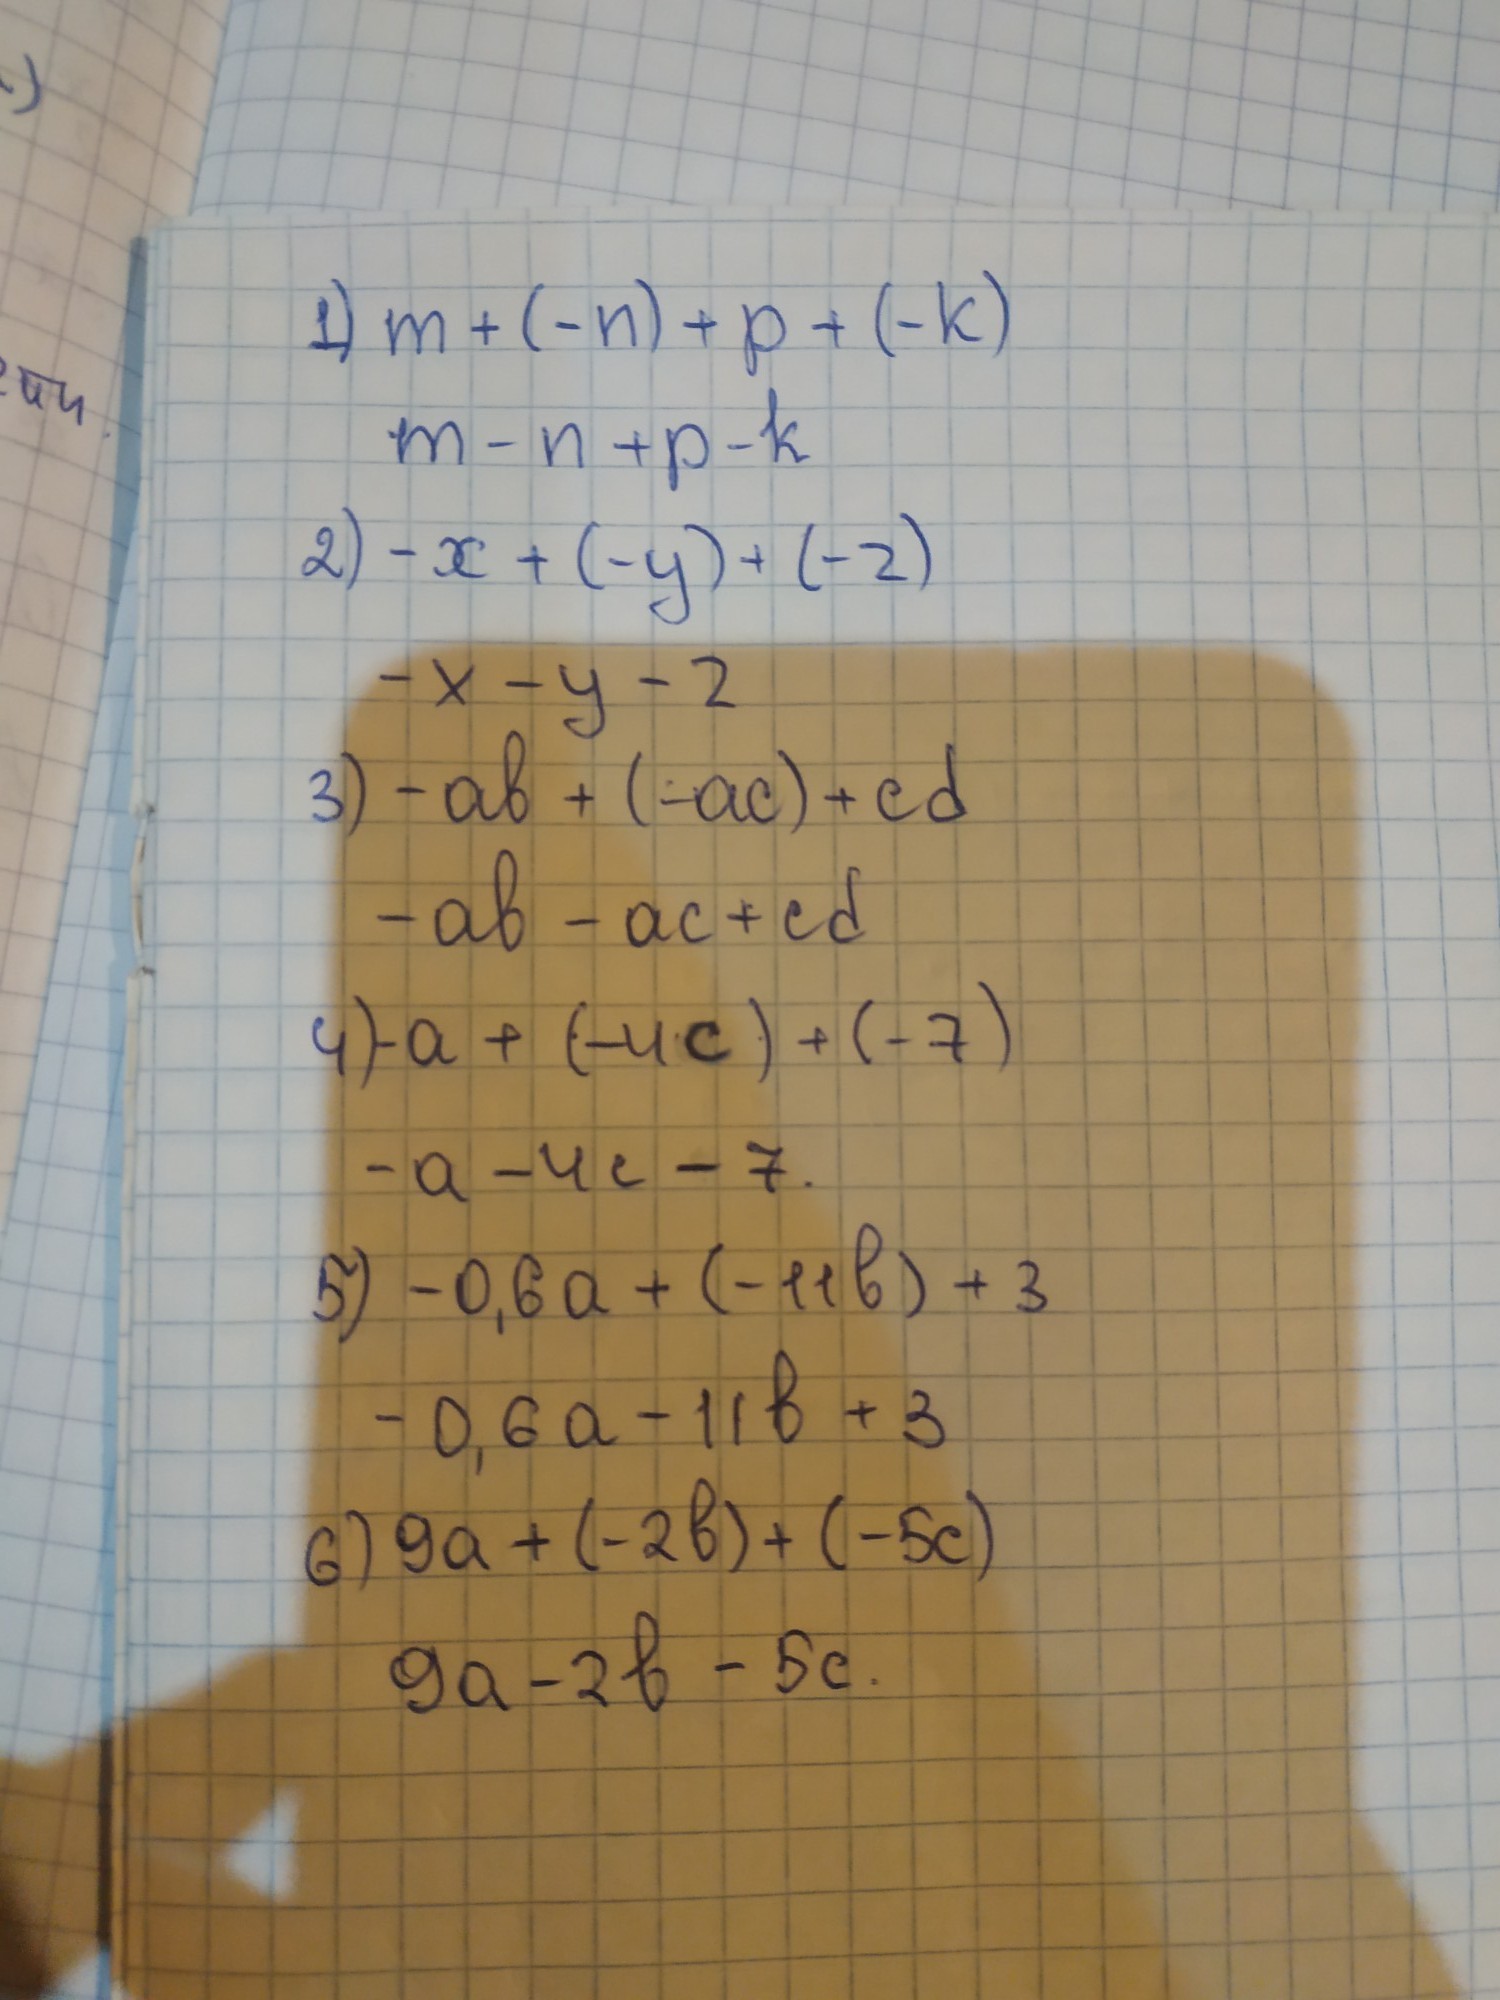 1) m + (-n) + p + (-k)
m - n + p - k
2) -x + (-y) + (-z)
-x - y - z
3) -ab + (-ac) + cd
-ab - ac + cd
4) -a + (-4c) + (-7)
-a - 4c - 7.
5) -0,6a + (-11b) + 3
-0,6a - 11b + 3
6) 9a + (-2b) + (-5c)
9a - 2b - 5c.